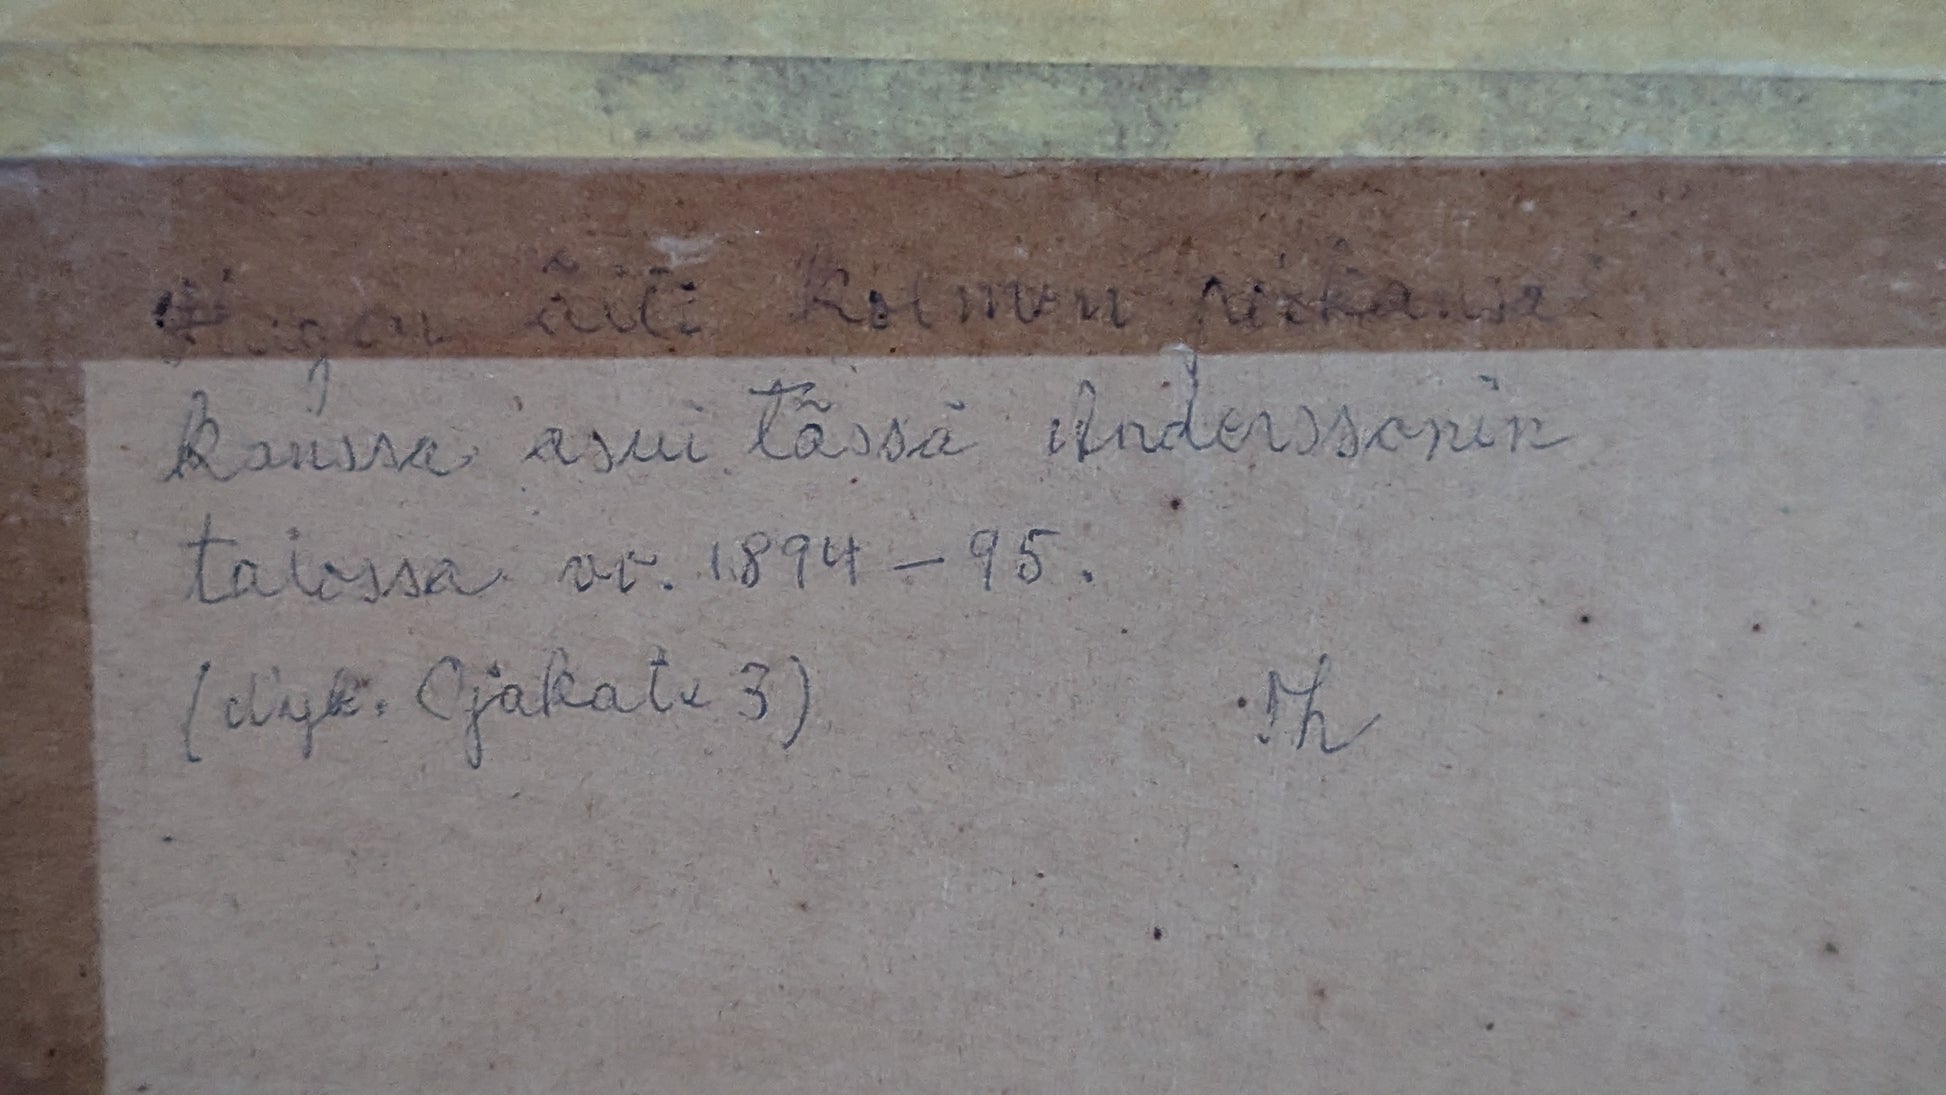 Hugon äiti kolmen poikansa
kanssa asui tässä Anderssonin
talossa vv. 1894-95.
(nyk. Ojakatu 3)